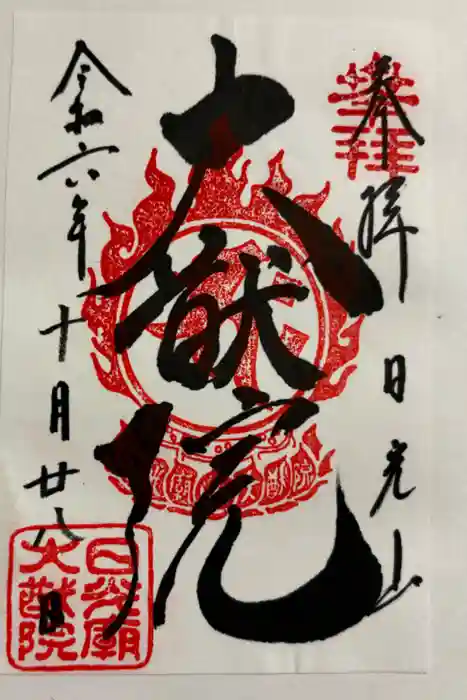 奉拝 日光山
大猷院
令和六年十月廿八日
日光廟
大猷院